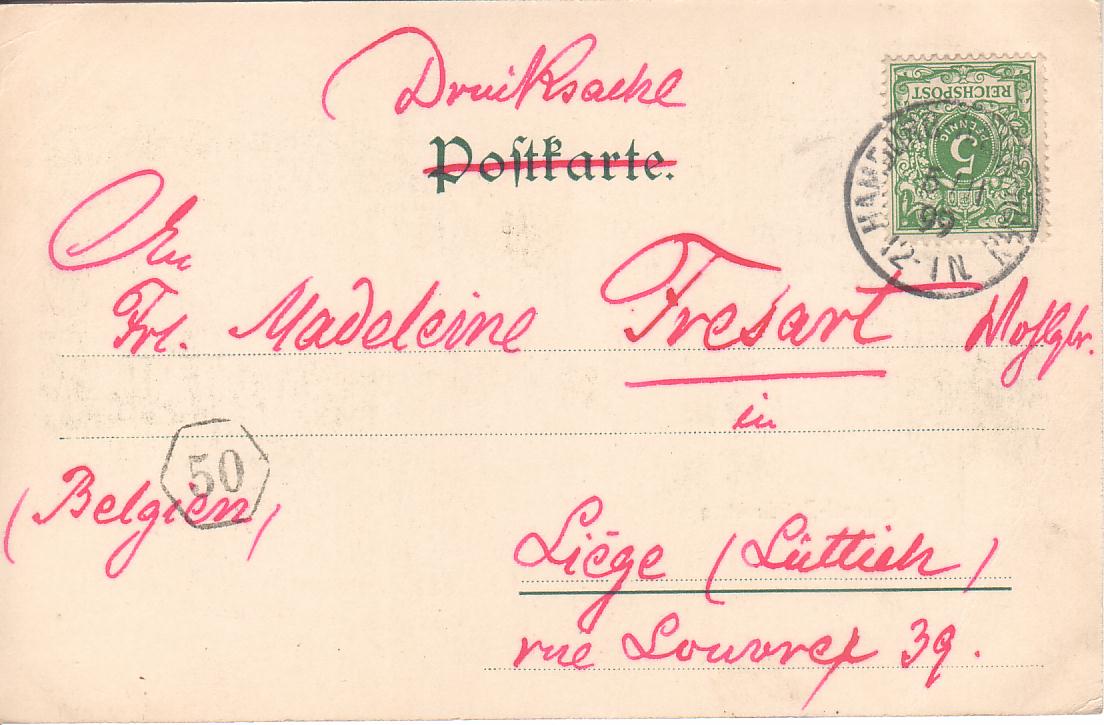 Drucksache
Postkarte.
REICHSPOST
PFENNIG
5
HAMBURG
5
99
12-1N
An
Frl. Madeleine Fresart Wohlgb.
in
50
(Belgien)
Liège (Lüttich)
rue Louvrex 39.